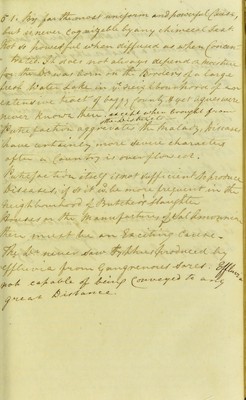 by far the most uniform and powerful Cause,
but is never cognizable by any chemical test
Not so powerful when diffused as when Concen
trated. It does not always depend on moisture
for was born on the Borders of a large
fresh Water Lake in ye very neighbourhood of an
extensive tract of boggy County, & yet agues were
never known there, except when brought from
a distance
Putrefaction aggravates the malady, Diseases
have certainly more severe characters
after a Country is overflowed.
Putrefaction itself is not sufficient to produce
Diseases, if so it wd. be more frequent in the
neighbourhood of Butchers Slaughter
Houses or the Manufactures of Sal Ammoniac
there must be an Exciting Cause.
The Dr. never saw Typhus produced by
effluvia from Gangrenous Sores. Effluvia
not capable of being Conveyed to any
great Distance.